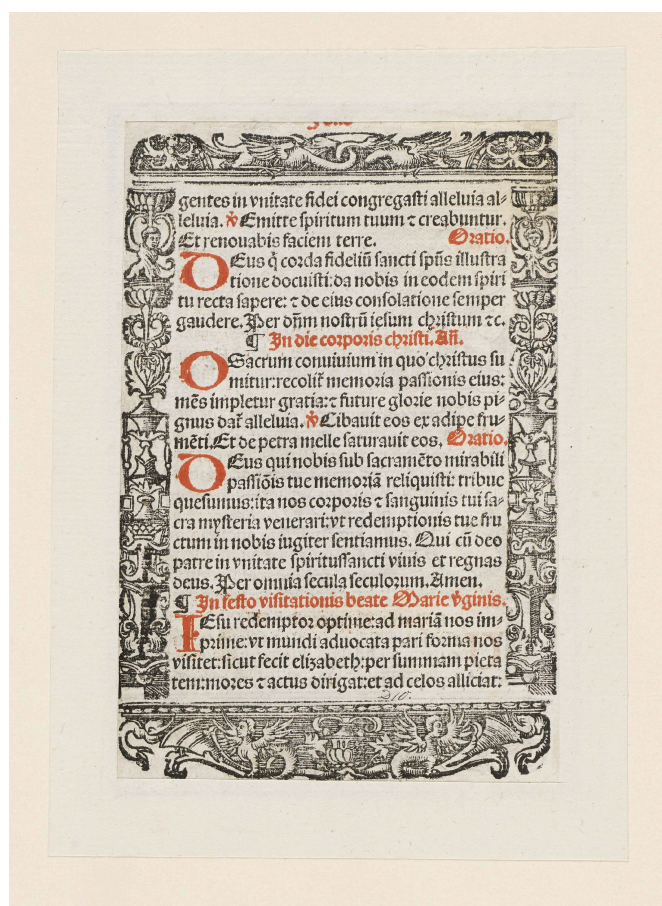 gentes in vnitate fidei congregasti alleluia al⸗
leluia. ℣ Emitte spiritum tuum ⁊ creabuntur.
Et renouabis faciem terre. Oratio.
DEus q̇ corda fideliũ sancti spũs illustra
tione docuisti: da nobis in eodem spiri
tu recta sapere: ⁊ de eius consolatione semper
gaudere. Per dñm nostrũ iesum christum ⁊c.
¶ In die corporis christi. Añ.
OSacrum conuiuium in quo christus su
mitur: recolit̃ memoria passionis eius:
mẽs impletur gratia: ⁊ future glorie nobis pi⸗
gnus dat̃ alleluia. ℣ Cibauit eos ex adipe fru⸗
mẽti. Et de petra melle saturauit eos. Oratio.
DEus qui nobis sub sacramẽto mirabili
passiõis tue memoriã reliquisti: tribue
quesumus: ita nos corporis ⁊ sanguinis tui sa⸗
cra mysteria venerari: vt redemptionis tue fru
ctum in nobis iugiter sentiamus. Qui cũ deo
patre in vnitate spiritussancti viuis et regnas
deus. Per omnia secula seculorum. Amen.
¶ In festo visitationis beate Marie ṽginis.
IEsu redemptor optime: ad mariã nos im⸗
prime: vt mundi aduocata pari forma nos
visitet: sicut fecit elizabeth: per summam pieta
tem: mores ⁊ actus dirigat: et ad celos alliciat: